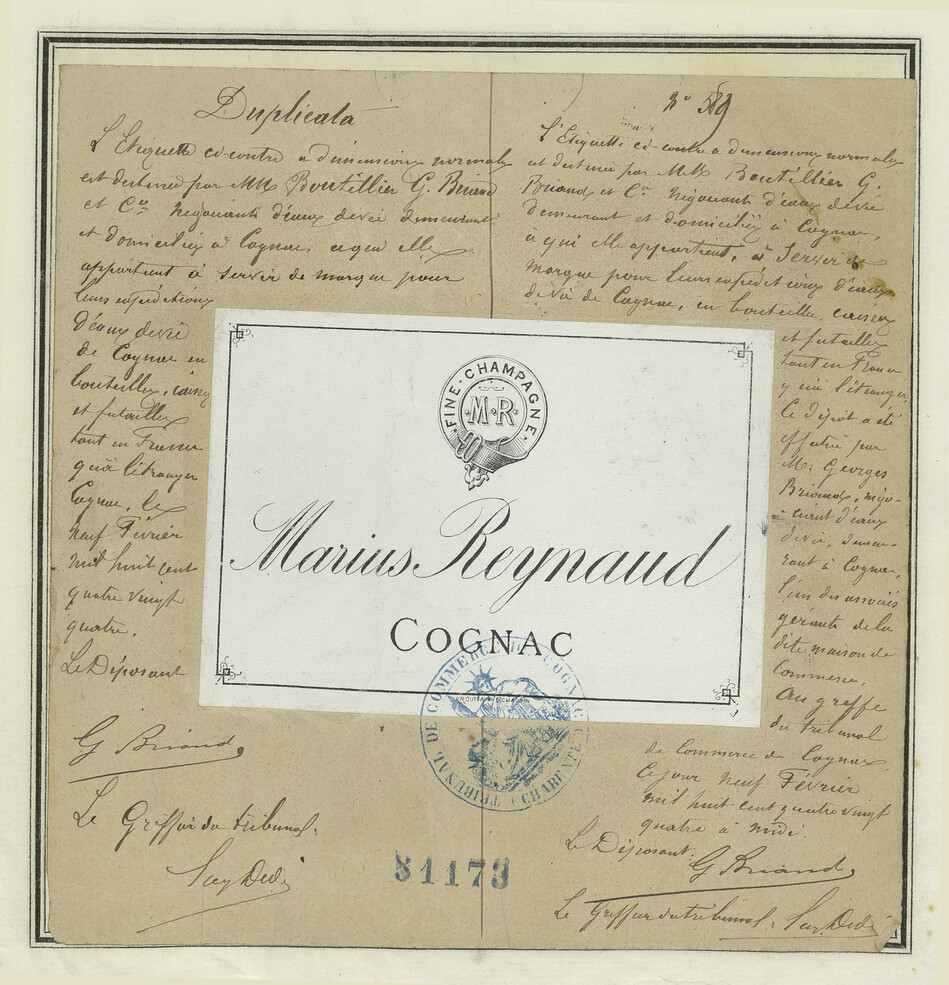 Duplicata
L'Etiquette ci-contre a dimensions normales
est destinée par MM Boutillier G. Briand
et Cie Négociants d'eaux de vie demeurant
et domiciliés à Cognac, à qui elle
appartient à servir de marque pour
leurs expéditions
d'eaux de vie
de Cognac en
bouteilles, caisses
et futailles
tant en France
qu'à l'étranger
Cognac, le
neuf Février
mil huit cent
quatre vingt
quatre.
Le Déposant
G Briand
Le Greffier du tribunal.
No 589
L'Etiquette ci-contre a dimensions normales
est destinée par MM Boutillier G.
Briand et Cie Négociants d'eaux de vie
demeurant et domiciliés à Cognac,
à qui elle appartient, à Servir de
marque pour leurs expéditions d'eaux
de vie de Cognac, en bouteilles, caisses
et futailles
tant en France
qu'à l'étranger
Ce dépôt a été
effectué par
M. Georges
Briand, négo-
-ciant d'eaux
de vie, demeu-
rant à Cognac,
l'un des associés
gérants de la
dite maison de
Commerce,
Au greffe
du tribunal
de Commerce de Cognac
Ce jour neuf Février
mil huit cent quatre vingt
quatre à midi.
Le Déposant.
G Briand
Le Greffier du tribunal.
FINE·CHAMPAGNE
·M·R·
Marius Reynaud
COGNAC
TRIBUNAL DE COMMERCE DE COGNAC
(CHARENTE)
81173